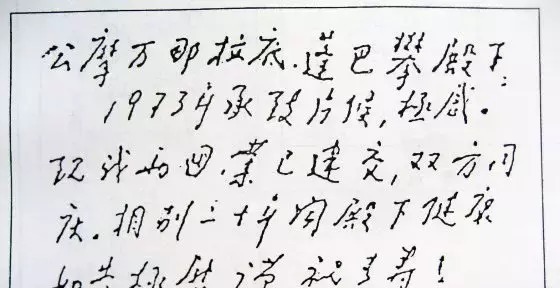 公摩万那拉底·蓬巴攀殿下:
1973年承致片候,極感。
现我两国,業已建交,双方同
庆。相别二十年闻殿下健康
如昔極慰 谨祝寿!